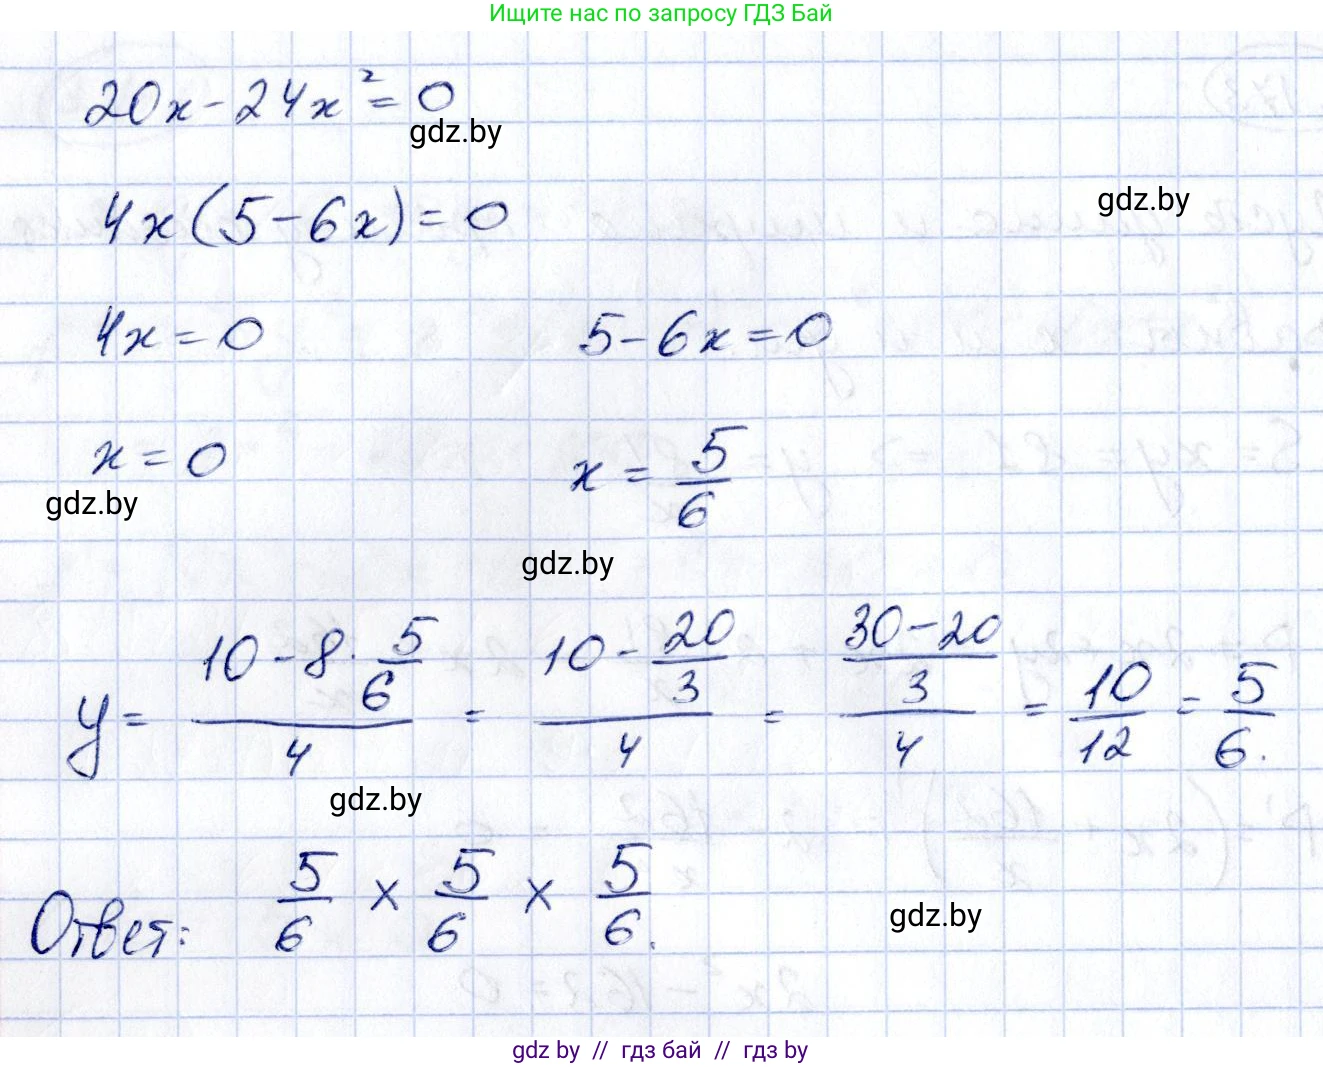 Ищите нас по запросу ГДЗ Бай
20x - 24x² = 0
gdz.by
4x(5 - 6x) = 0
gdz.by
4x = 0    5 - 6x = 0
x = 0    x = 5/6
gdz.by
gdz.by
y = (10 - 8 · 5/6)/4 = (10 - 20/3)/4 = ((30 - 20)/3)/4 = 10/12 = 5/6.
gdz.by
Ответ: 5/6 × 5/6 × 5/6.
gdz.by
gdz by // гдз бай // гдз by